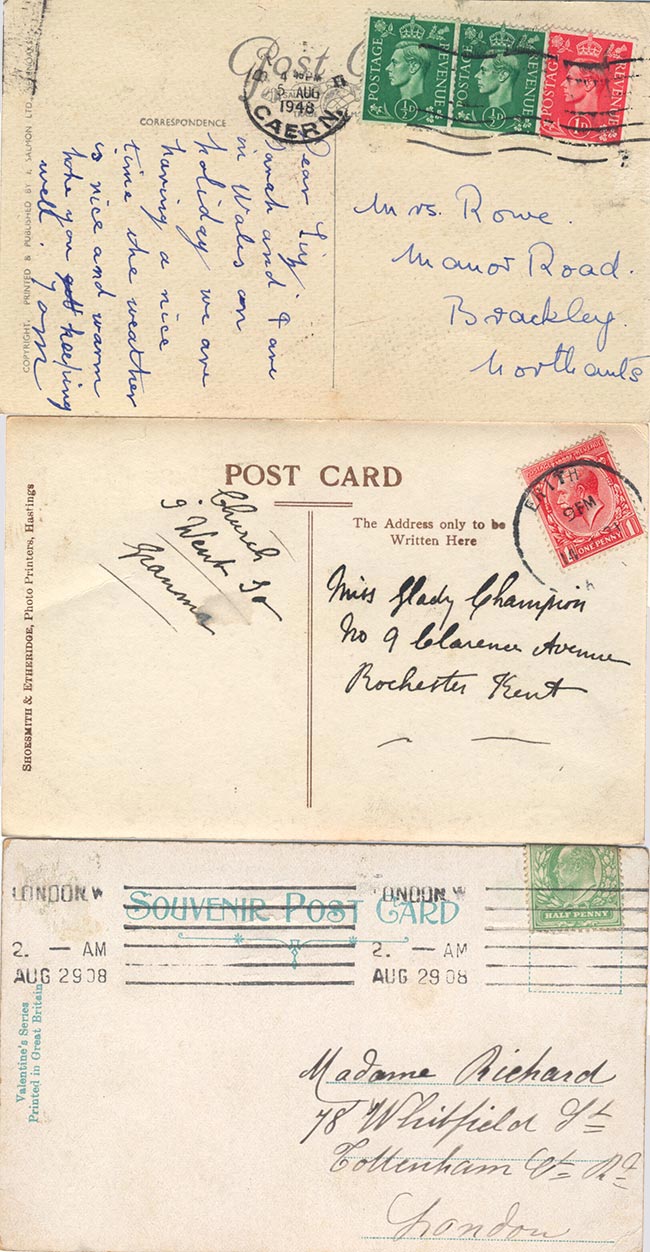 Post C
4 PM
5 AUG
1948
CAERN.
POSTAGE REVENUE
½D
POSTAGE REVENUE
½D
REVENUE
1D
CORRESPONDENCE
COPYRIGHT. PRINTED & PUBLISHED BY J. SALMON LTD.
Dear Lizy. I are
Sarah and I are
in Wales on
holiday we are
having a nice
time the weather
is nice and warm
hope you keeping
well. Tom
Mrs. Rowe.
Manor Road.
Brackley.
Northants
POST CARD
Church
I Went To
Gramma
The Address only to be
Written Here
SHOESMITH & ETHERIDGE, Photo Printers, Hastings
ERITH
9 PM
14
ONE PENNY
1
Miss Glady Champion
No 9 Clarence Avenue
Rochester Kent
LONDON W
2. — AM
AUG 29 08
LONDON W
2. — AM
AUG 29 08
SOUVENIR POST CARD
HALF PENNY
Valentine's Series
Printed in Great Britain
Madame Richard
78 Whitfield St
Tottenham Ct Rd
London